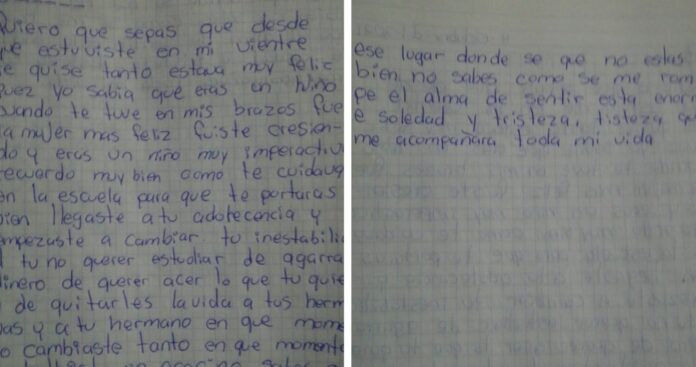 Quiero que sepas que desde
que estuviste en mi vientre
te quise tanto estava muy feliz
Yo sabia que eras un niño
cuando te tuve en mis brazos fue
la mujer mas feliz fuiste cresien-
do y eras un niño muy imperactivo
recuerdo muy bien como te cuidava
en la escuela para que te portaras
bien llegaste a tu adolecencia y
empezaste a cambiar tu inestabili
tu no querer estudiar de agarra
dinero de querer acer lo que tu quie
de quitarles la vida a tus herm
nas y a tu hermano en que mome
cambiaste tanto en que momento
ese lugar donde se que no estas
bien no sabes como se me rom
pe el alma de sentir esta enor
e soledad y tristeza, tisteza qu
me acompañara toda mi vida